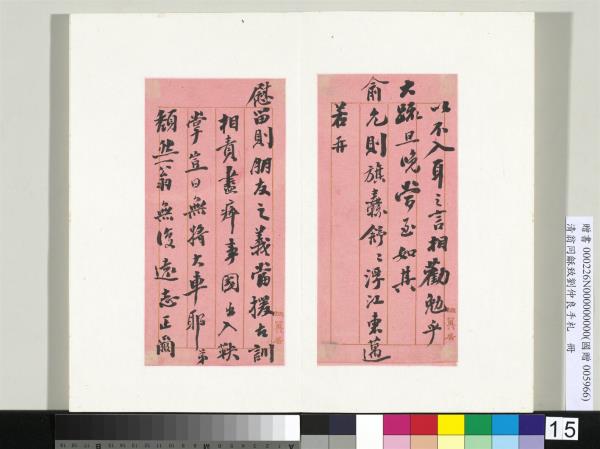 以不入耳之言相勸勉乎
大疏旦晚當至如其
俞允則旗纛舒〻浮江東邁
若再
慰留則朋友之義當援古訓
相責盡瘁事國出入鞅
掌豈曰無將大車耶弟
頹然一翁無復遠志正爾
贈書 000226N000000000(國贈 005966)
清翁同龢致劉仲良手札 冊
15